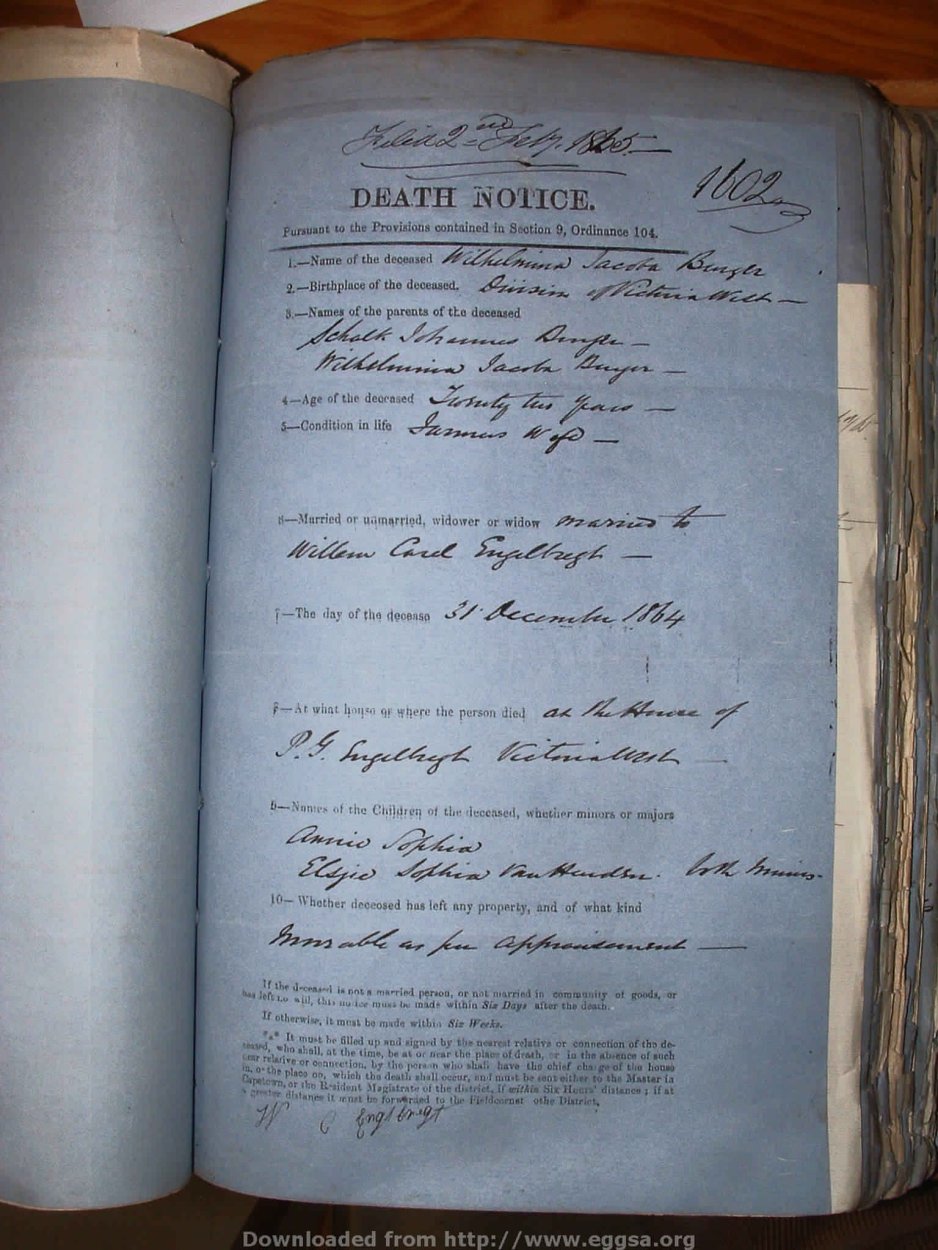 Filed 2nd Feby. 1865.—
1602
DEATH NOTICE.
Pursuant to the Provisions contained in Section 9, Ordinance 104.
1.—Name of the deceased Wilhelmina Jacoba Burger
2.—Birthplace of the deceased. Division of Victoria West —
3.—Names of the parents of the deceased
Schalk Johannes Burger —
Wilhelmina Jacoba Burger —
4—Age of the deceased Twenty two Years —
5—Condition in life Farmers Wife —
6—Married or unmarried, widower or widow married to
Willem Carel Engelbregt —
7—The day of the decease 31 December 1864
8—At what house or where the person died at the House of
P. G. Engelbregt Victoria West —
9—Names of the Children of the deceased, whether minors or majors
Annie Sophia
Elsjie Sophia Van Heerden. both minors-
10—Whether deceosed has left any property, and of what kind
Movable as per appraisement —
If the deceased is not a married person, or not married in community of goods, or
has left no will, this notice must be made within Six Days after the death.
If otherwise, it must be made within Six Weeks.
*** It must be filled up and signed by the nearest relative or connection of the de-
ceased, who shall, at the time, be at or near the place of death, or in the absence of such
near relative or connection, by the person who shall have the chief charge of the house
in, or the place on, which the death shall occur, and must be sent either to the Master in
Capetown, or the Resident Magistrate of the district, if within Six Hours' distance; if at
a greater distance it must be forwarded to the Fieldcornet othe District.
W C Englbregt
Downloaded from http://www.eggsa.org